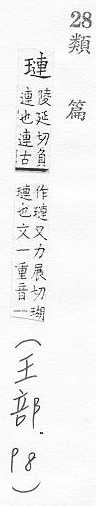 28 類篇
璉
陵延切負
連也連古
作璉又力展切瑚
璉也文一重音一
(王部. P8)